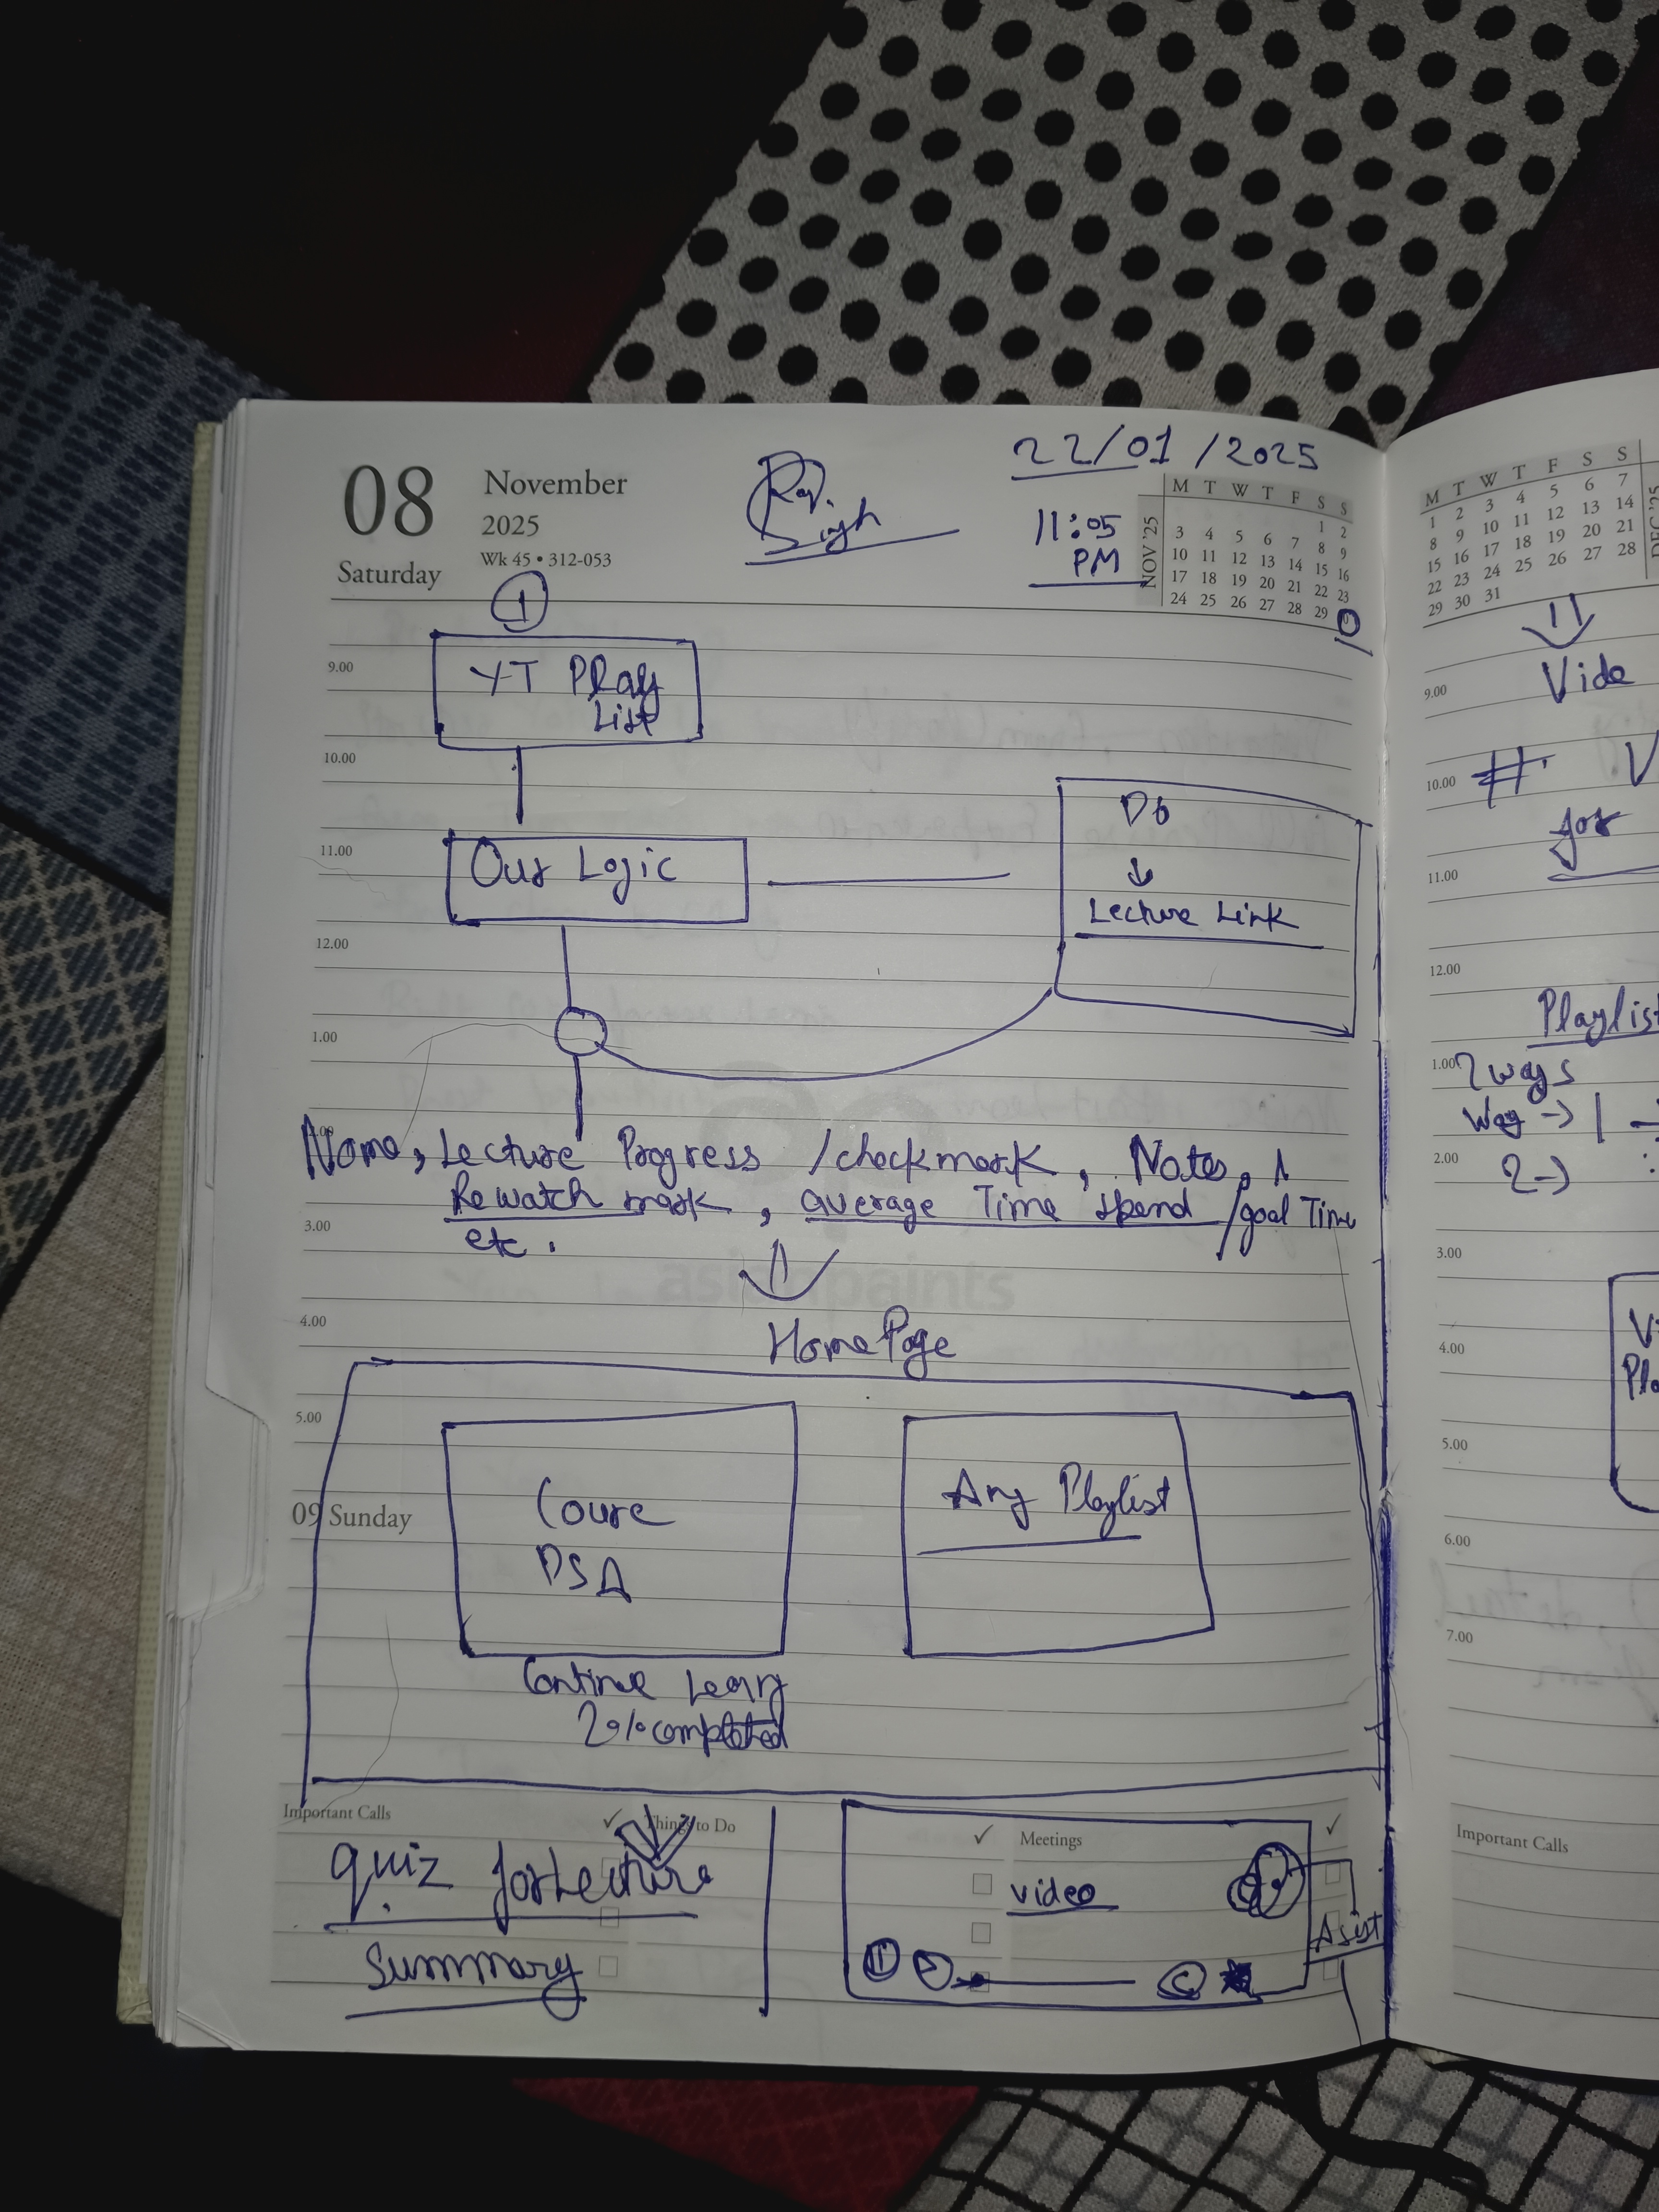 08
November
2025
Saturday
Wk 45 • 312-053
Singh
22/01/2025
11:05
PM
NOV '25
M T W T F S S
1 2
3 4 5 6 7 8 9
10 11 12 13 14 15 16
17 18 19 20 21 22 23
24 25 26 27 28 29
1
9.00
YT Play
List
10.00
11.00
Our Logic
Db
Lecture Link
12.00
1.00
Name, Lecture Progress /checkmark, Notes,
Rewatch mark, average Time spend /goal Time
etc.
3.00
asianpaints
4.00
HomePage
5.00
09 Sunday
Course
DSA
Any Playlist
Continue Learng
20% completed
Important Calls
Things to Do
Meetings
quiz for Lecture
Summary
video
Asist
M T W T F S S
1 2 3 4 5 6 7
8 9 10 11 12 13 14
15 16 17 18 19 20 21
22 23 24 25 26 27 28
29 30 31
DEC '25
9.00
Vide
10.00
# V
for
11.00
12.00
Playlist
1.00
2 ways
Way -> 1
2.00
2 ->
3.00
4.00
Vi
Pla
5.00
6.00
7.00
Important Calls